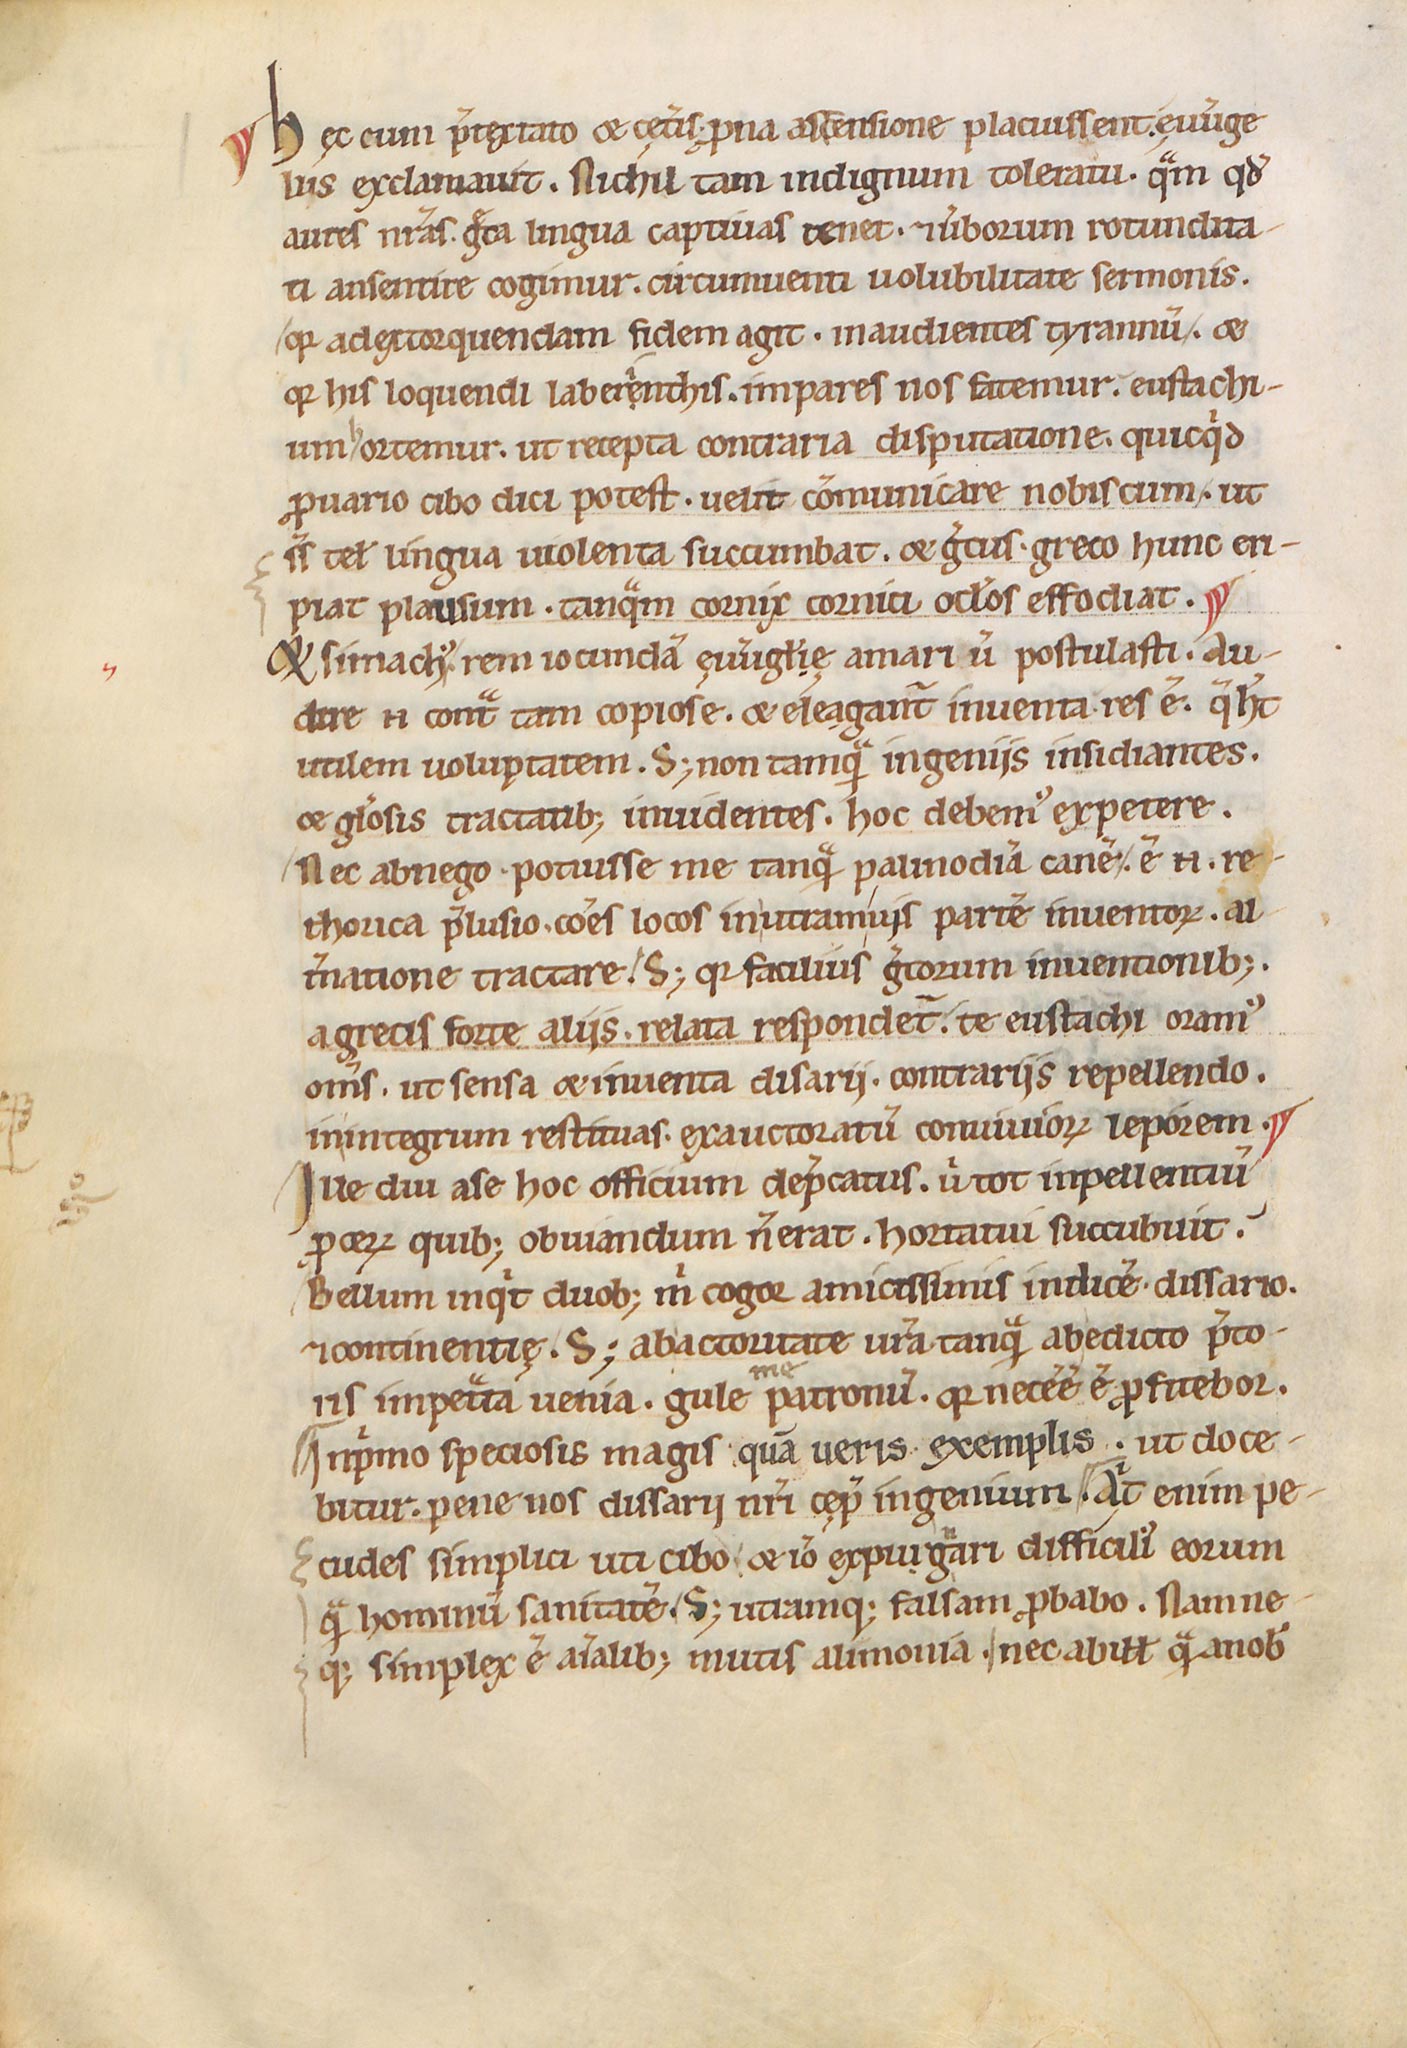 hęc cum p̄textato & cęt̄is ꝓna ascensione placuissent. ęuūge
lus exclamauit. Nichil tam indignum toleratu. qͣm qđ
aures nr̄as ḡca lingua captiuas tenet. ⁊ūborum rotundita-
ti ansentire cogimur. circumuenti uolubilitate sermonis.
qꝛ adextorquendam fidem agit. inaudientes tyrannū. &
qꝛ his loquendi laberinthis. impares nos fatemur. eustachi-
um hortemur. ut recepta contraria disputatione. quicqͥd
ꝓuario cibo dici potest. uelit cōmunicare nobiscum. ut
sͥs tel̵ lingua uiolenta succumbat. & ḡcus greco hunc eri-
piat plausum. tanqͣm cornix cornici ocl̵os effodiat.
Et simachꝰ. rem iocundā ęuūgl̵ię amari ū postulasti. Au-
dere n̄ cont̄ͣ tam copiose. & eleagant̄ inuenta res ē. q̄ h̵t
utilem uoluptatem. S; non tamqͣ ingeniis insidiantes.
& gl̵osis tractatib; inuidentes. hoc debemꝰ expetere.
Nec abnego potuisse me tanqͣ palinodiā canē. ē n̄. re-
thorica p̄lusio. cōes locos inutramuis partē inuentoꝝ. al
t̄natione tractare. S; qꝛ facilius ḡcorum inuentionib;.
agrecis forte aliis. relata respondet̄. te eustachi oramꝰ
om̄s. ut sensa & inuenta disarii. contrariis repellendo.
inintegrum restituas. exauctoratū conuiuioꝝ leporem.
Ille diu ase hoc officium dep̄catus. ū tot inpellentiū
ꝓceꝝ quib; obuiandum n̄erat. hortatui succubuit.
Bellum inqͥt duob; m̄ cogor amicissimis indicē. dissario.
⁊continentię. S; abactoritate ur̄a tanqͣ abedicto p̄to-
ris impetͣta uenia. gule me patronū. qꝛ necēē ē ꝓfitebor.
Inpͥmo speciosis magis quā ueris exemplis. ut doce-
bitur. pene nos dissarii nr̄i cęp̄ ingenium. Aͥt enim pe-
cudes simplici uti cibo & iō expurgari difficiliꝰ eorum
qͣ hominū sanitatē. S; utramq; falsam ꝓbabo. Nam ne-
q; simplex ē aīalib; mutis alimonia. nec abill̵ qͣ anob̵